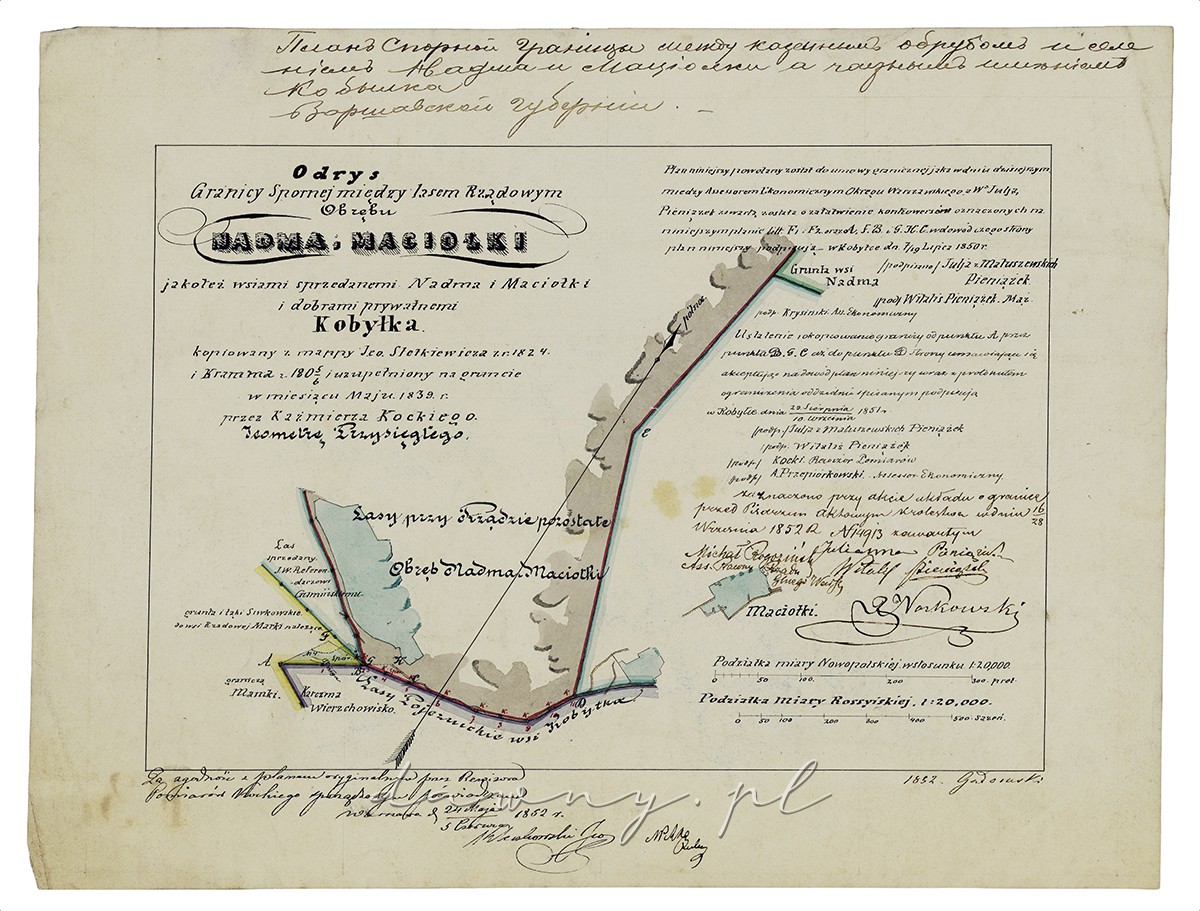 Планъ Спорной границы между казеннымъ обрубомъ и селе
ніемъ Надма и Маціолки а частнымъ имѣніемъ
Кобылка
Варшавской Губерніи. —
Odrys
Granicy Spornej między lasem Rządowym
Obrębu
NADMA, MACIOŁKI
jakoteż wsiami sprzedanemi Nadma i Maciołki
i dobrami prywatnemi
Kobyłka.
kopiowany z mappy Jeo. Sletkiewicza z r. 1824.
i Kramma z 180 5/6 i uzupełniony na gruncie
w miesiącu Maju 1839. r.
przez Kaźmierza Kockiego.
Jeometrę Przysięgłego.
Plan niniejszy powołany został do umowy granicznej jaka w dniu dzisiejszym
między Assesorem Ekonomicznym Okręgu Warszawskiego, a Wą Julją
Pieniążek zawartą została o załatwienie kontrowersów oznaczonych na
niniejszym planie Litt F. i F2. oraz A. F. B. i G. H. C. w dowód czego strony
plan niniejszy podpisują — w Kobyłce dn. 7/19 Lipca 1850 r.
/podpisano/ Julja z Matuszewskich
Pieniążek.
/pod/ Witalis Pieniążek. Mąż.
podp. Krysiński. Ass. Ekonomiczny
Grunta wsi
Nadma
północ
Ustalenie i okopcowanie granicy od punktu A przez
punkta B. G. C aż do punktu D strony umawiające się
akceptując na dowód plan niniejszy wraz z protokułem
ograniczenia oddzielni spisanym podpisują
w Kobyłce dnia 29 Sierpnia / 10 Września 1851 r
/podp./ Julja z Matuszewskich Pieniążek
/podp. Witalis Pieniążek
/podp/ Kocki. Rewizor Pomiarów
/podp/ A. Przepiórkowski. Assesor Ekonomiczny.
zaznaczono przy akcie układu o granice
przed Pisarzem Aktowym Królestwa w dniu 16/28
Września 1852 R N 14913 zawartym
Julianna Pieniążek
Witalis Pieniążek
Maciołki.
Lasy przy Rządzie pozostałe
Obręb Nadma, Maciołki
Las
sprzedany
J.W. Referen-
darzowi
grunta i łąki Siwkowskie.
do wsi Rządowej Marki należące
A
B
C
D
E
G
H
spór
granica
Mamki.
Karczma
Wierzchowisko.
Lasy wsi Kobyłka
Podziałka miary Nowopolskiej. w stosunku 1:20,000.
0 50 100 200 300 pręt.
Podziałka Miary Rossyjskiej. 1:20,000.
0 50 100 200 300 400 500 Sążen.
Za zgodność z planem oryginalnym przez Rewizora
Pomiarów Kockiego sporządzonym poświadczam
Warszawa d. 24 Maja / 5 Czerwca 1852 r.
1852.
dawny.pl